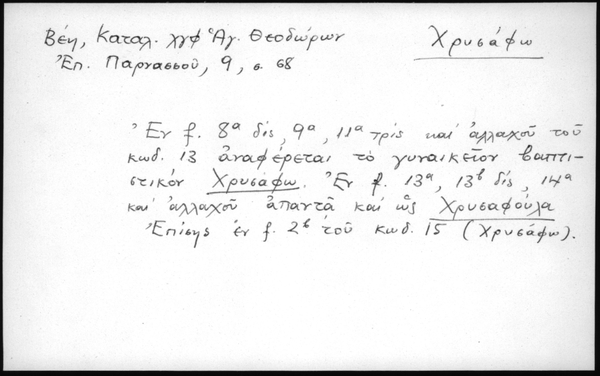 Βέη, Καταλ. χγφ Ἁγ. Θεοδώρων
Χρυσάφω
Ἐπ. Παρνασσοῦ, 9, σ. 68
Ἐν f. 8ᵃ δίς, 9ᵃ, 11ᵃ τρίς καί ἀλλαχοῦ τοῦ
κωδ. 13 ἀναφέρεται τό γυναικεῖον βαπτι-
στικόν Χρυσάφω. Ἐν f. 13ᵃ, 13ᵇ δίς, 14ᵃ
καί ἀλλαχοῦ ἀπαντᾶ καί ὡς Χρυσαφούλα
Ἐπίσης ἐν f. 2ᵇ τοῦ κωδ. 15 (Χρυσάφω).